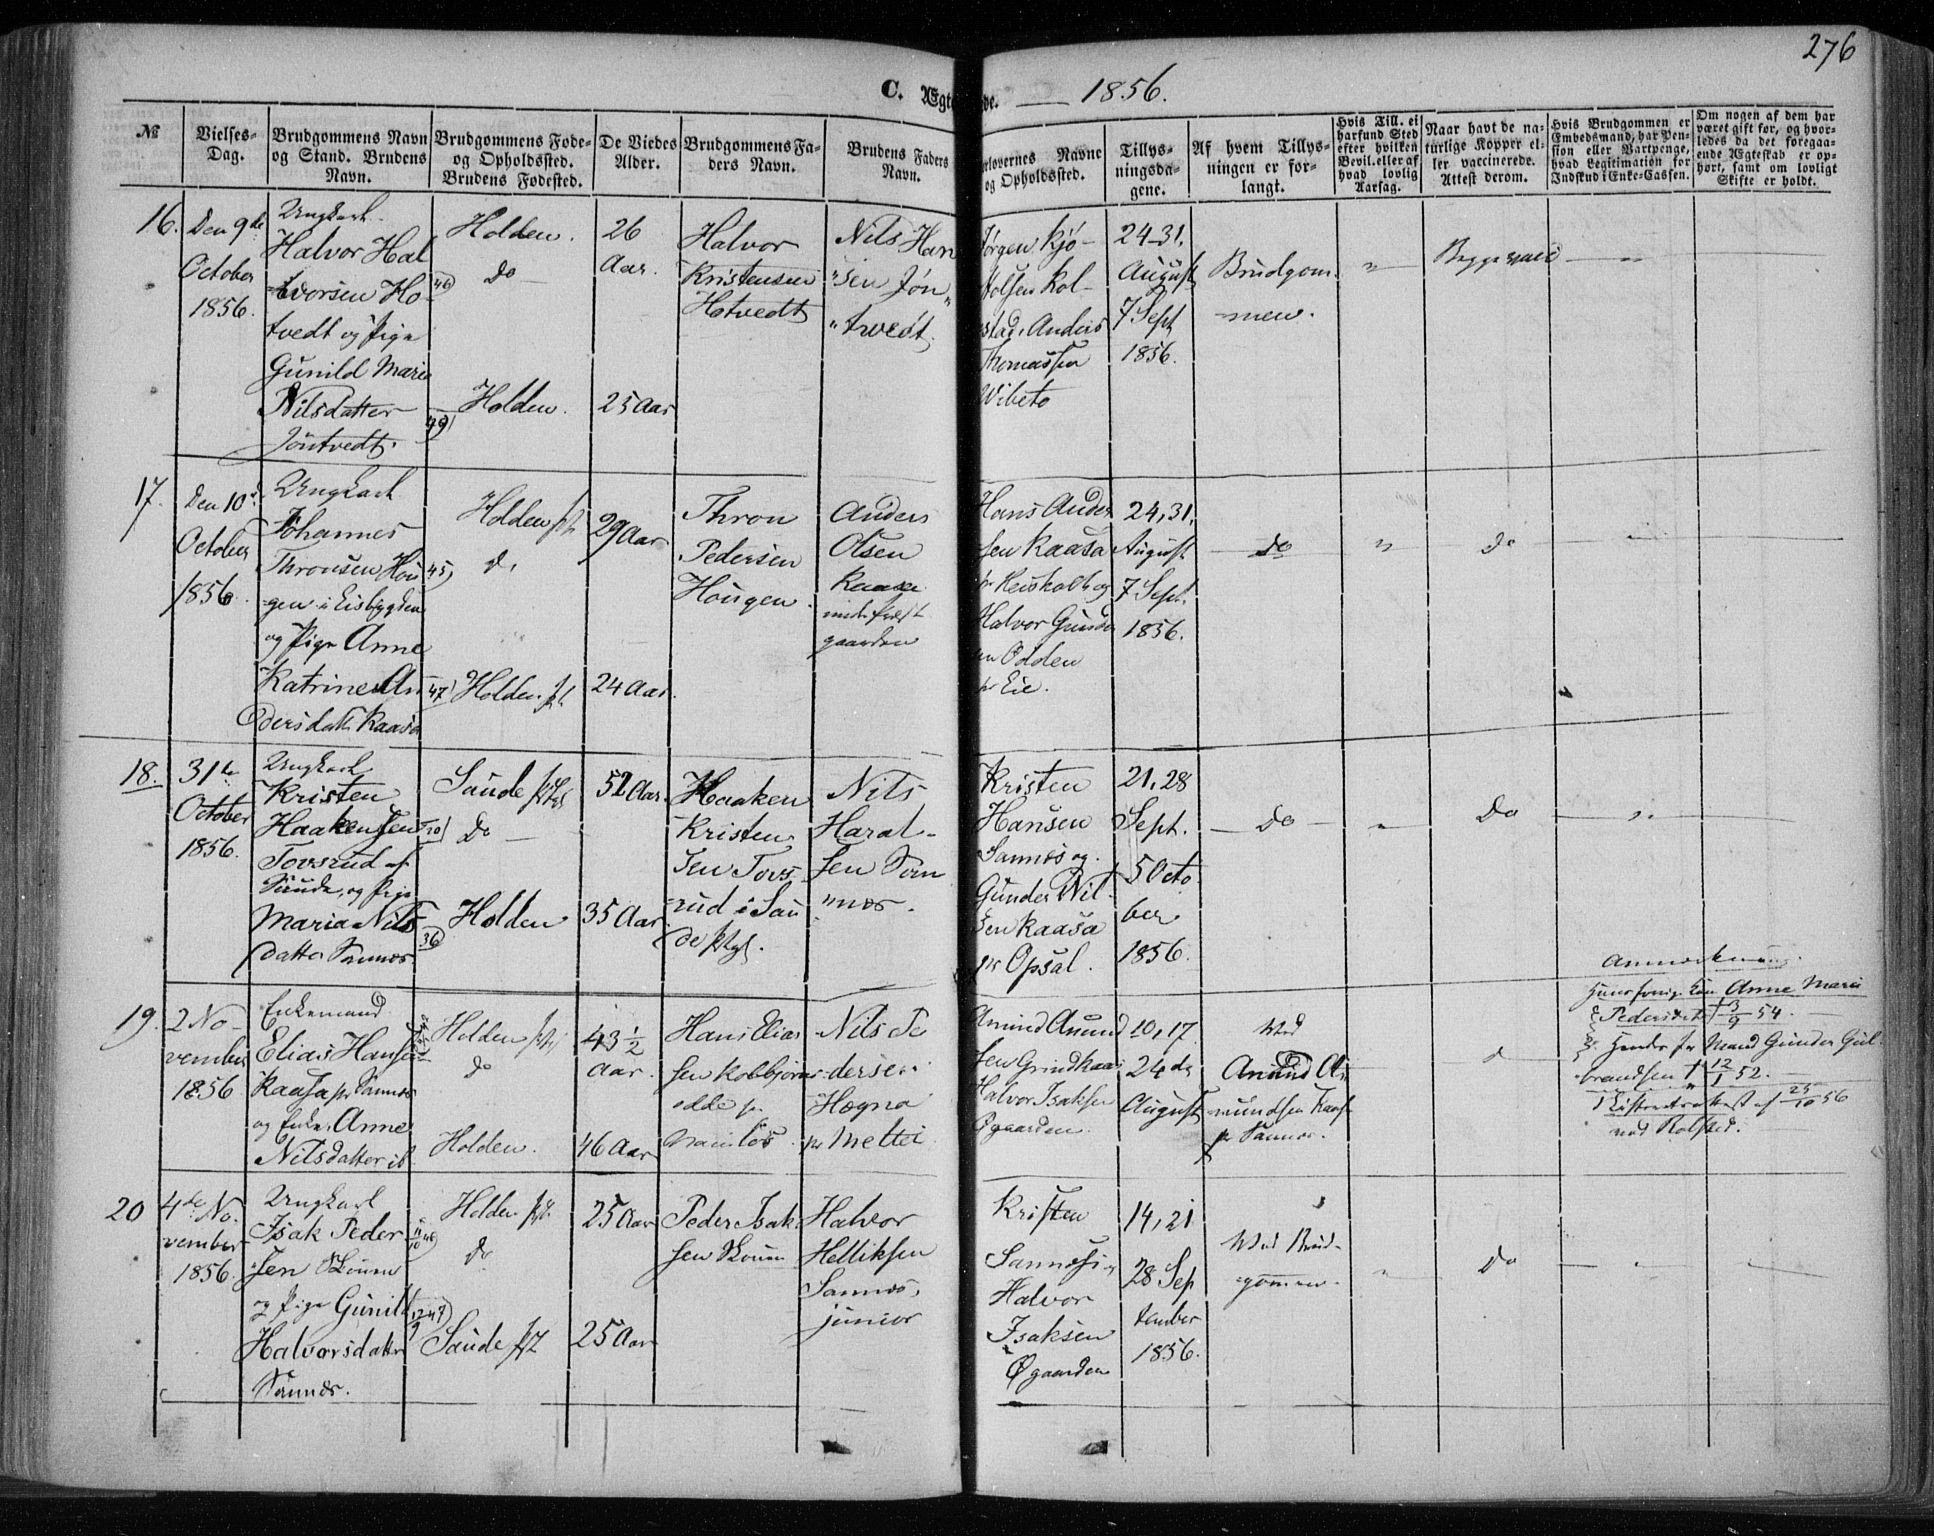 276
C. Ægte
de. — 1856.
No
Vielses-
Dag.
Brudgommens Navn
og Stand. Brudens
Navn.
Brudgommens Føde-
og Opholdssted.
Brudens Fødested.
De Viedes
Alder.
Brudgommens Fa-
ders Navn.
Brudens Faders
Navn.
orlovernes Navne
og Opholdsted.
Tillys-
ningsda-
gene.
Af hvem Tillys-
ningen er for-
langt.
Hvis Till. ei
harfund Sted
efter hvilken
Bevil. eller af
hvad lovlig
Aarsag.
Naar havt de na-
turlige Kopper el-
ler vaccinerede.
Attest derom.
Hvis Brudgommen er
Embedsmand, har Pen-
sion eller Vartpenge,
hvad Legitimation for
Indskud i Enke-Cassen.
Om nogen af dem har
været gift før, og hvor-
ledes da det foregaa-
ende Ægteskab er op-
hørt, samt om lovligt
Skifte er holdt.
16.
Den 9de
October
1856.
Ungkarl
Halvor Hal
vorsen Ho
tvedt og Pige
Gunild Marie
Nilsdatter
Jøntvedt.
46
49)
Holden.
do —
Holden.
26
Aar.
25 Aar
Halvor
Kristensen
Hotvedt
Nils Han
"sen Jøn"
"tvedt.
Jørgen Kjø-
stolsen Kol-
stad, Anders
Thomassen
Wibeto
24-31.
August
7 Sept
1856.
Brudgom-
men.
"
Begge vacc
— " —
17.
Den 10de
October
1856.
Ungkarl
Johannes
Thronsen Hou
gen i Eisbygden
og Pige Anne
Katrine An
dersdatt Kaasa
45)
47)
Holden
d.
Holden.
29 Aar
24 Aar.
Thron
Pedersen
Hougen.
Anders
Olsen
Kaasa
under Præst
gaarden
Hans Ander
sen Kaasa
Halvor Gunde
Odden
pr Eie.
24, 31.
August
7 Sept.
1856.
— do
"
do
18.
31te
October
1856.
Ungkarl
Kristen
Haakensen
Tovsrud af
Saude, og Pige
Maria Nils
datter Sannes.
20)
36
Saude
Do —
Holden
52 Aar.
35 Aar
Haaken
Kristen
sen Tovs
rud i Sau
de
Nils
Haral-
sen San
"nes.
Kristen
Hansen
Sannes og
Gunder Nil
sen Kaasa
pr Opsal.
21, 28
Sept.
5 Octo
ber
1856.
— Do —
"
Do
— " —
19.
2 No-
vember
1856
Enkemand
Elias Hansen
Kaasa pr Sannes
og Enke Anne
Nilsdatter ib
Holden
do
Holden.
43 1/2
Aar.
46 Aar
Hans Elias
sen Kolbjørns
Nils Pe
dersen
Hogna
pr Mettei
Amund Amund
sen Grindkaas
Halvor Isaksen
Øgaarden.
10, 17.
24de
August
Ved
Amund A-
mundsen Kaas
pr Sannes.
d
Anmærkning.
Hans forrige Kone Anne Marie
Pedersdat † 3/9 54. —
Hendes f. Mand Gunder Gul-
brandsen † 12/1 52. —
Skifteattest af 25/10 56
ved Rolsted.
20
4de No-
vember
1856.
Ungkarl
Isak Peder
sen Skoum
og Pige Gunild
Halvorsdatter
Sannes.
Holden
Do
Saude
25 Aar
25 Aar
Peder Isak
sen Skoum
Halvor
Helliksen
Sannes,
junior
Kristen
Halvor
Isaksen
Øgaarden
14, 21
28 Sep
tember
1856.
Ved Brud-
gommen.
"
Do